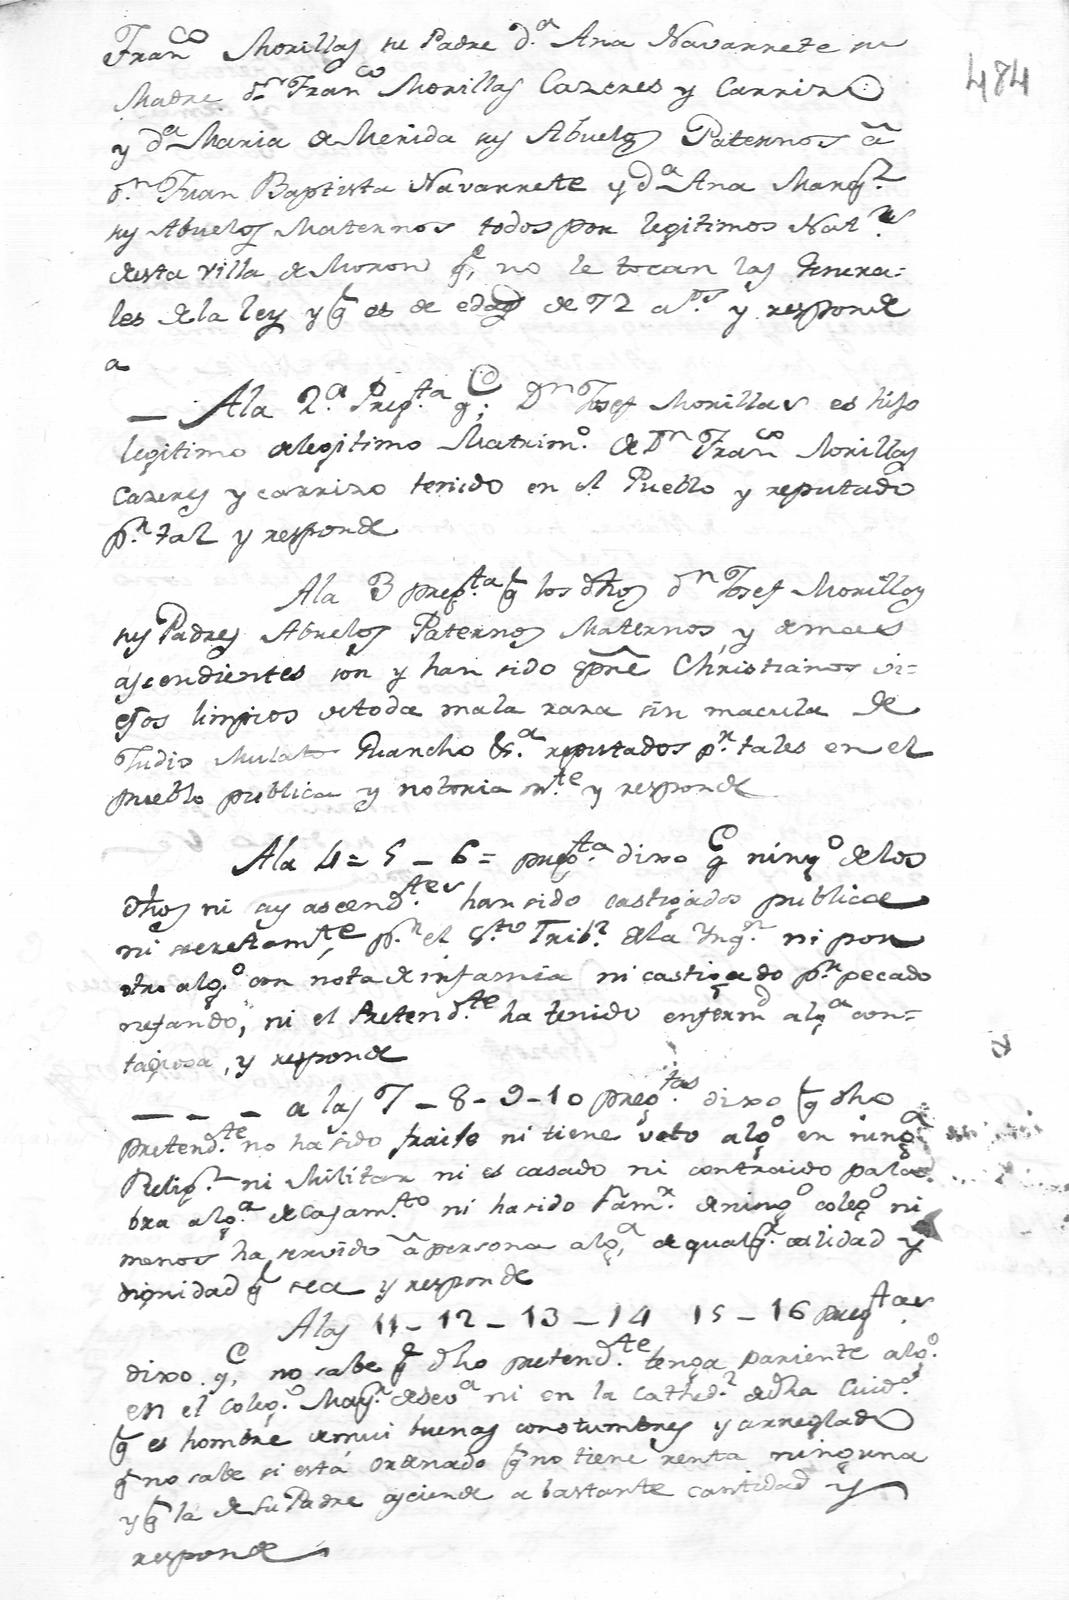 Fran.co Morillas su Padre d.a Ana Navarrete su
Madre d.n Fran.co Morillas Cazeres y Carrizo
y d.a Maria de Merida sus Abuelos Paternos â
d.n Juan Baptista Navarrete y d.a Ana Marq.z
sus Abuelos Maternos todos por legitimos Nat.s
desta villa de Moron q.e no le tocan las Genera=
les de la ley y q es de edad de 72 a.os y responde
a
484
— Ala 2.a Preg.ta q.e D.n Josef Morillas es hijo
legitimo de legitimo Matrim.o de D.n Fran.co Morillas
Cazeres y carrizo tenido en el Pueblo y reputado
p.r tal y responde
Ala 3 preg.ta q los dhos d.n Josef Morillas
sus Padres Abuelos Paternos Maternos, y demas
ascendientes son y han sido spre Christianos vi=
ejos limpios de toda mala raza sin macula de
Judio Mulato Guancho &.a reputados p.r tales en el
pueblo publica y notoria m.te y responde
Ala 4= 5 – 6= preg.ta dixo q ning.o de los
dhos ni sus ascend.tes han sido castigados publica
ni secretam.te p.r el S.to Trib.l de la Ynq.n ni por
otro alg.o con nota de infamia ni castigado p.r pecado
nefando, ni el Pretend.te ha tenido enfermd alg.a con=
tagiosa, y responde
— – – a las 7 – 8 – 9 – 10 preg.tas dixo q dho
pretend.te no ha sido fraile ni tiene voto alg.o en ning.a
Relig.n ni Militar ni es casado ni contraido pala
bra alg.a de casam.to ni ha sido Fam.r de ning.o coleg.o ni
menos ha servido â persona alg.a de qualq.r calidad y
dignidad q sea y responde
Alas 11 – 12 – 13 – 14 15 – 16 preg.tas
dixo q.e no sabe q dho pretend.te tenga pariente alg.o
en el coleg.o May.r de Sev.a ni en la cathed.l de dha Ciud.d
q es hombre de mui buenas constumbres y arreglado
q no sabe si está ordenado q no tiene renta ninguna
y q la de su Padre asciende a bastante cantidad y
responde